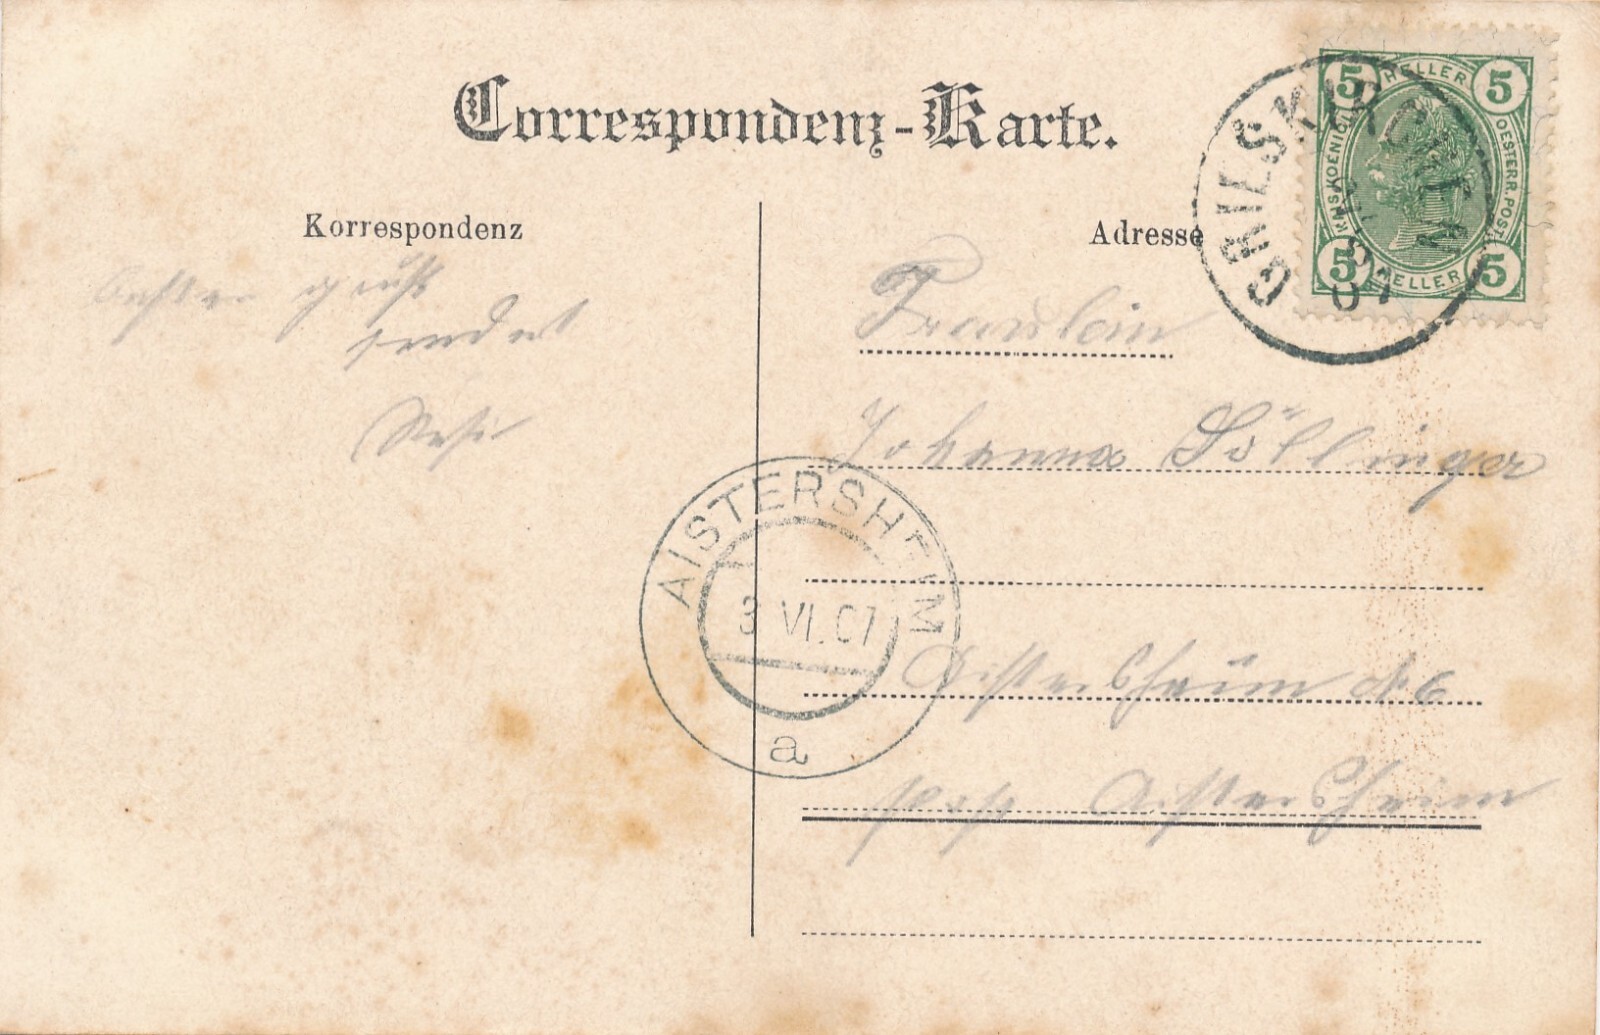 Correspondenz-Karte.
Korrespondenz
Adresse
5 HELLER 5
KAIS. KOENIGL.
OESTERR. POST.
5 HELLER 5
GRIESKIRCHEN
07
gruß
sendet
Resi
Fräulein
Johanna Söllinger
AISTERSHEIM
3 VI. 07
a
Aistersheim No 6
Post Aistersheim